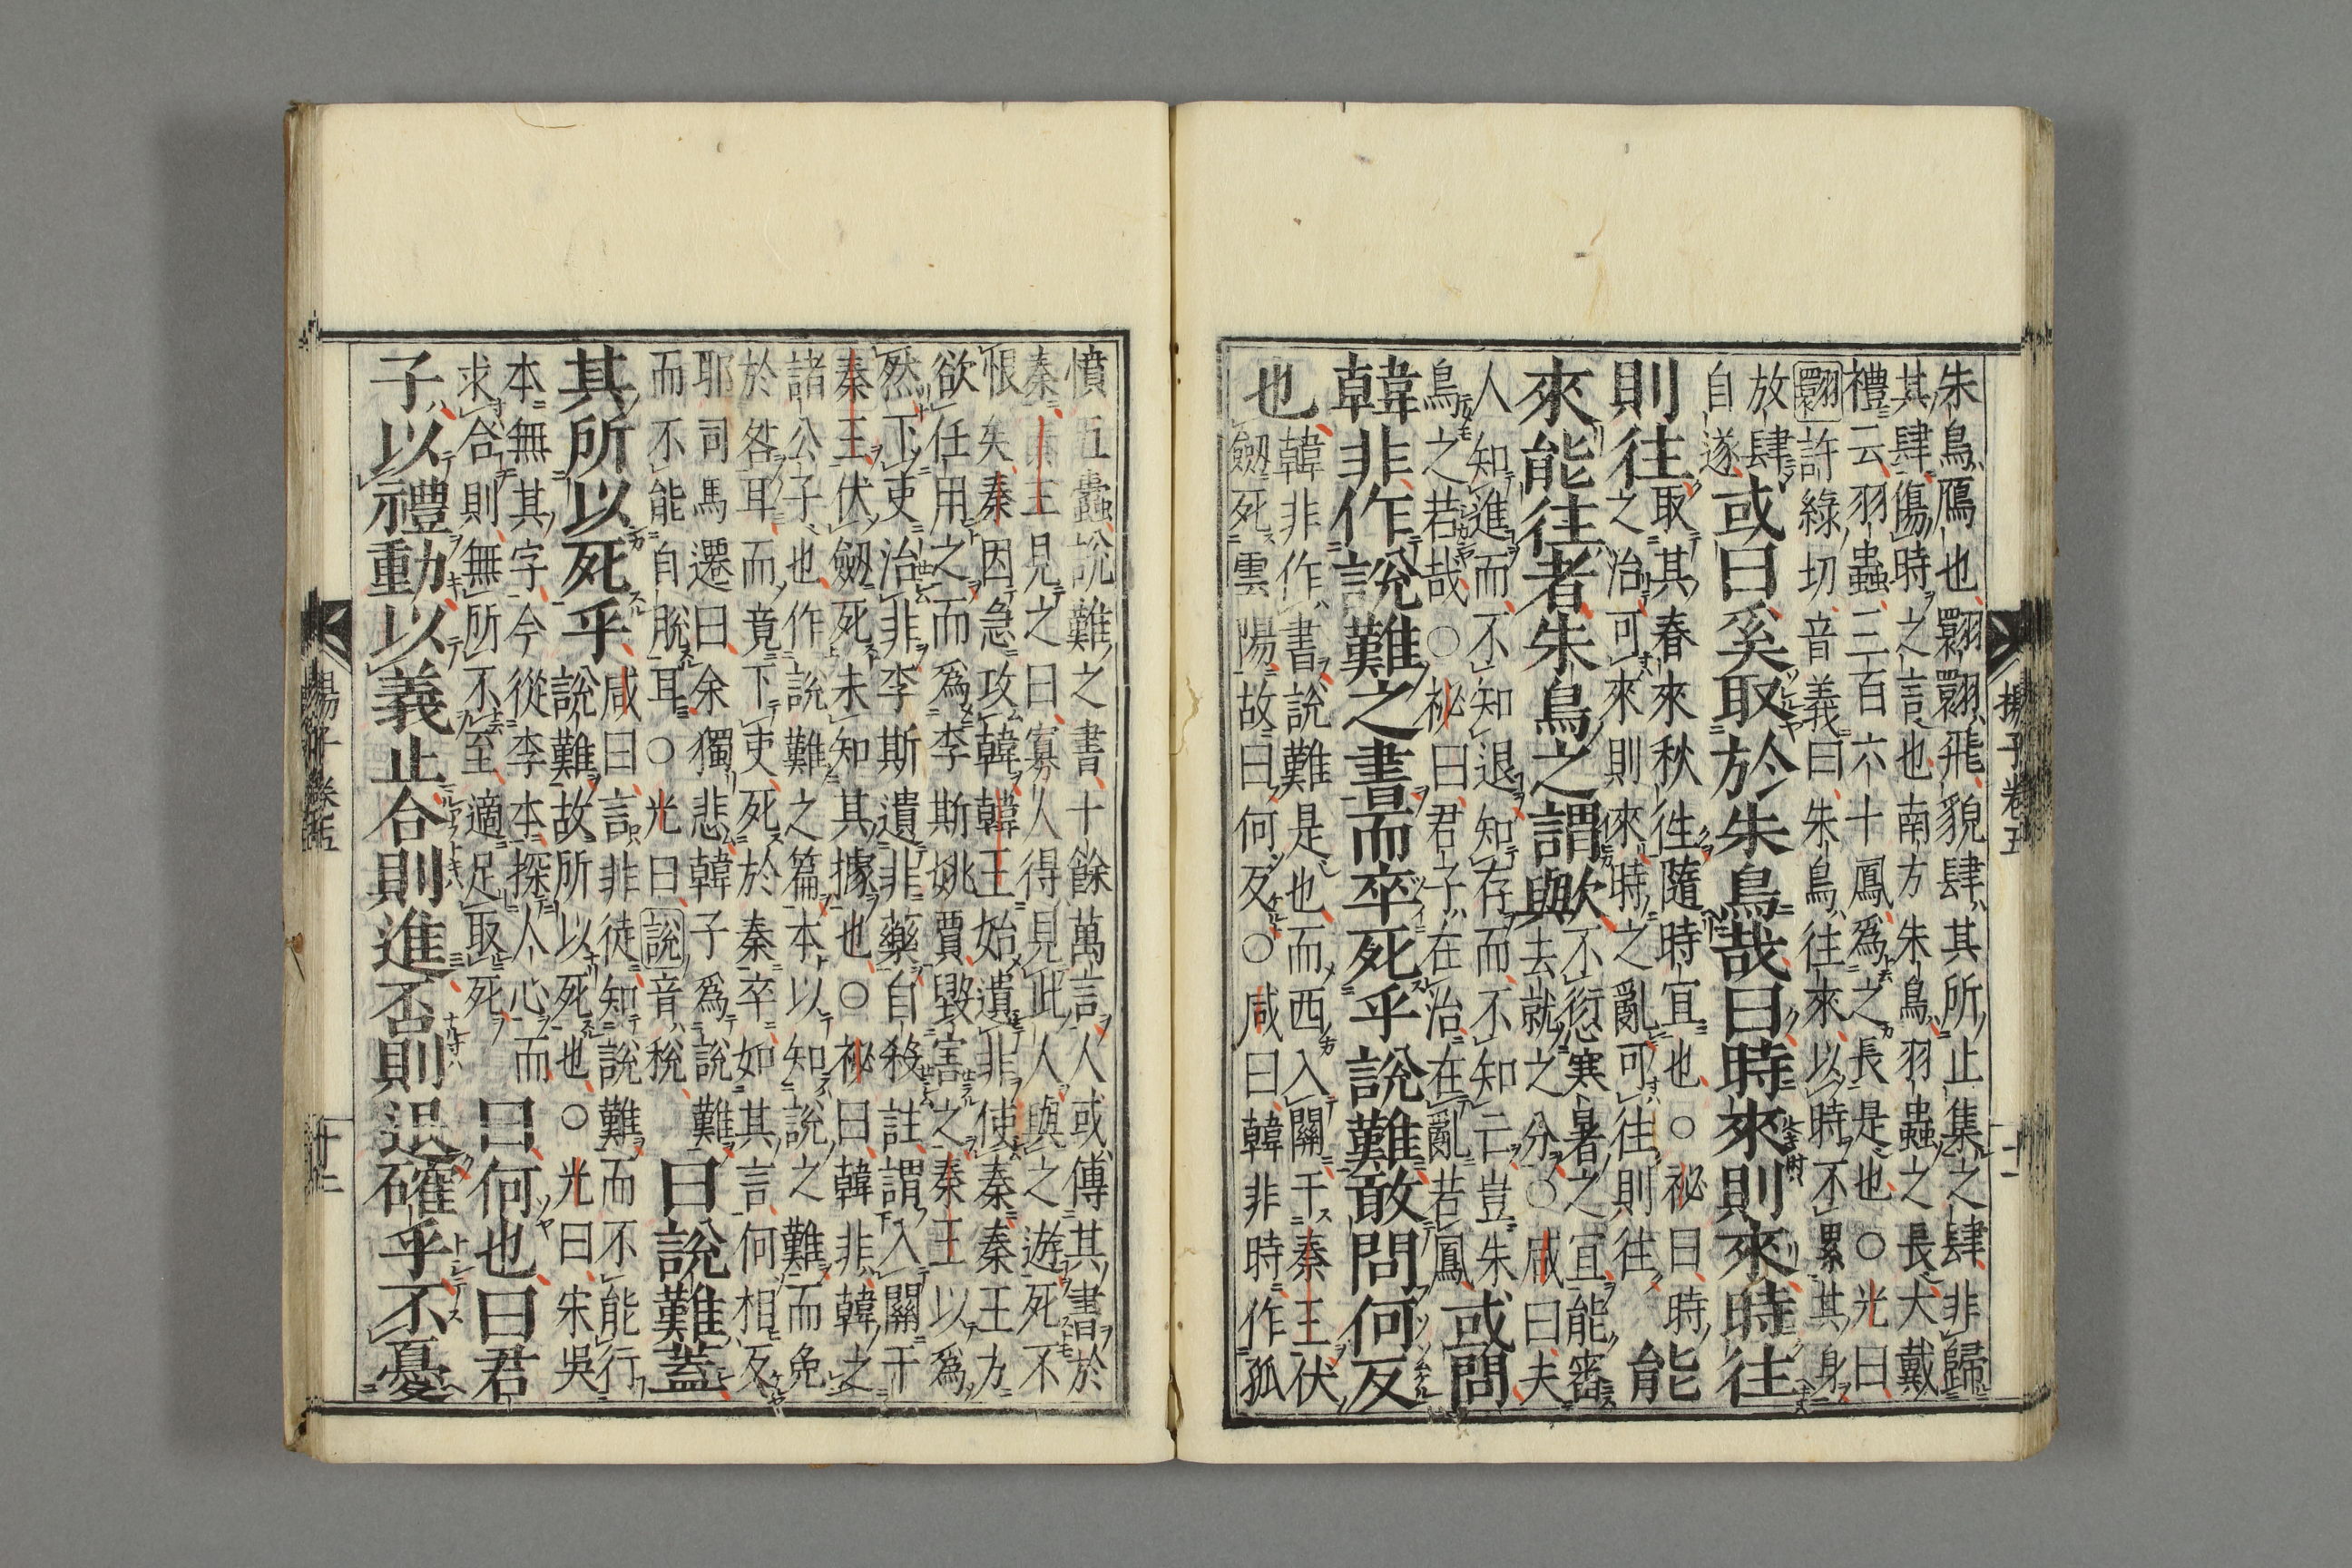 朱鳥鴈也翾翾飛貌肆其所止集之肆非歸
其肆傷時之言也南方朱鳥羽蟲之長大戴
禮云羽蟲三百六十鳳爲之長是也○光曰
翾許綠切音義曰朱鳥往來以時不累其身
放肆
自遂
或曰奚取於朱鳥哉曰時來則來時往
則往
取其春來秋往隨時宜也○祕曰時
之治可來則來時之亂可往則往
能
來能往者朱鳥之謂歟
不愆寒暑之宜能審
去就之分○咸曰夫
人知進而不知退知存而不知亡豈朱
鳥之若哉○祕曰君子在治在亂若鳳
或問
韓非作說難之書而卒死乎說難敢問何反
也
韓非作書說難是也而西入關干秦王伏
劔死雲陽故曰何反○咸曰韓非時作孤
揚子卷五
十一
憤五蠹說難之書十餘萬言人或傳其書於
秦秦王見之曰寡人得見此人與之遊死不
恨矣秦因急攻韓韓王始遣非使秦秦王方
欲任用之而爲李斯姚賈毀害之秦王以爲
然下吏治非李斯遺非藥自殺註謂入關干
秦王伏劔死未知其據也○祕曰韓非韓之
諸公子也作說難之篇本以知說之難而免
於咎耳而竟下吏死於秦卒如其言何相反
耶司馬遷曰余獨悲韓子爲說難
而不能自脫耳○光曰說音稅
曰說難蓋
其所以死乎
咸曰言非徒知說難而不能行
說難故所以死也○光曰宋吳
本無其字今從李本探人心而
求合則無所不至適足取死
曰何也曰君
子以禮動以義止合則進否則退確乎不憂
揚子卷五
十二